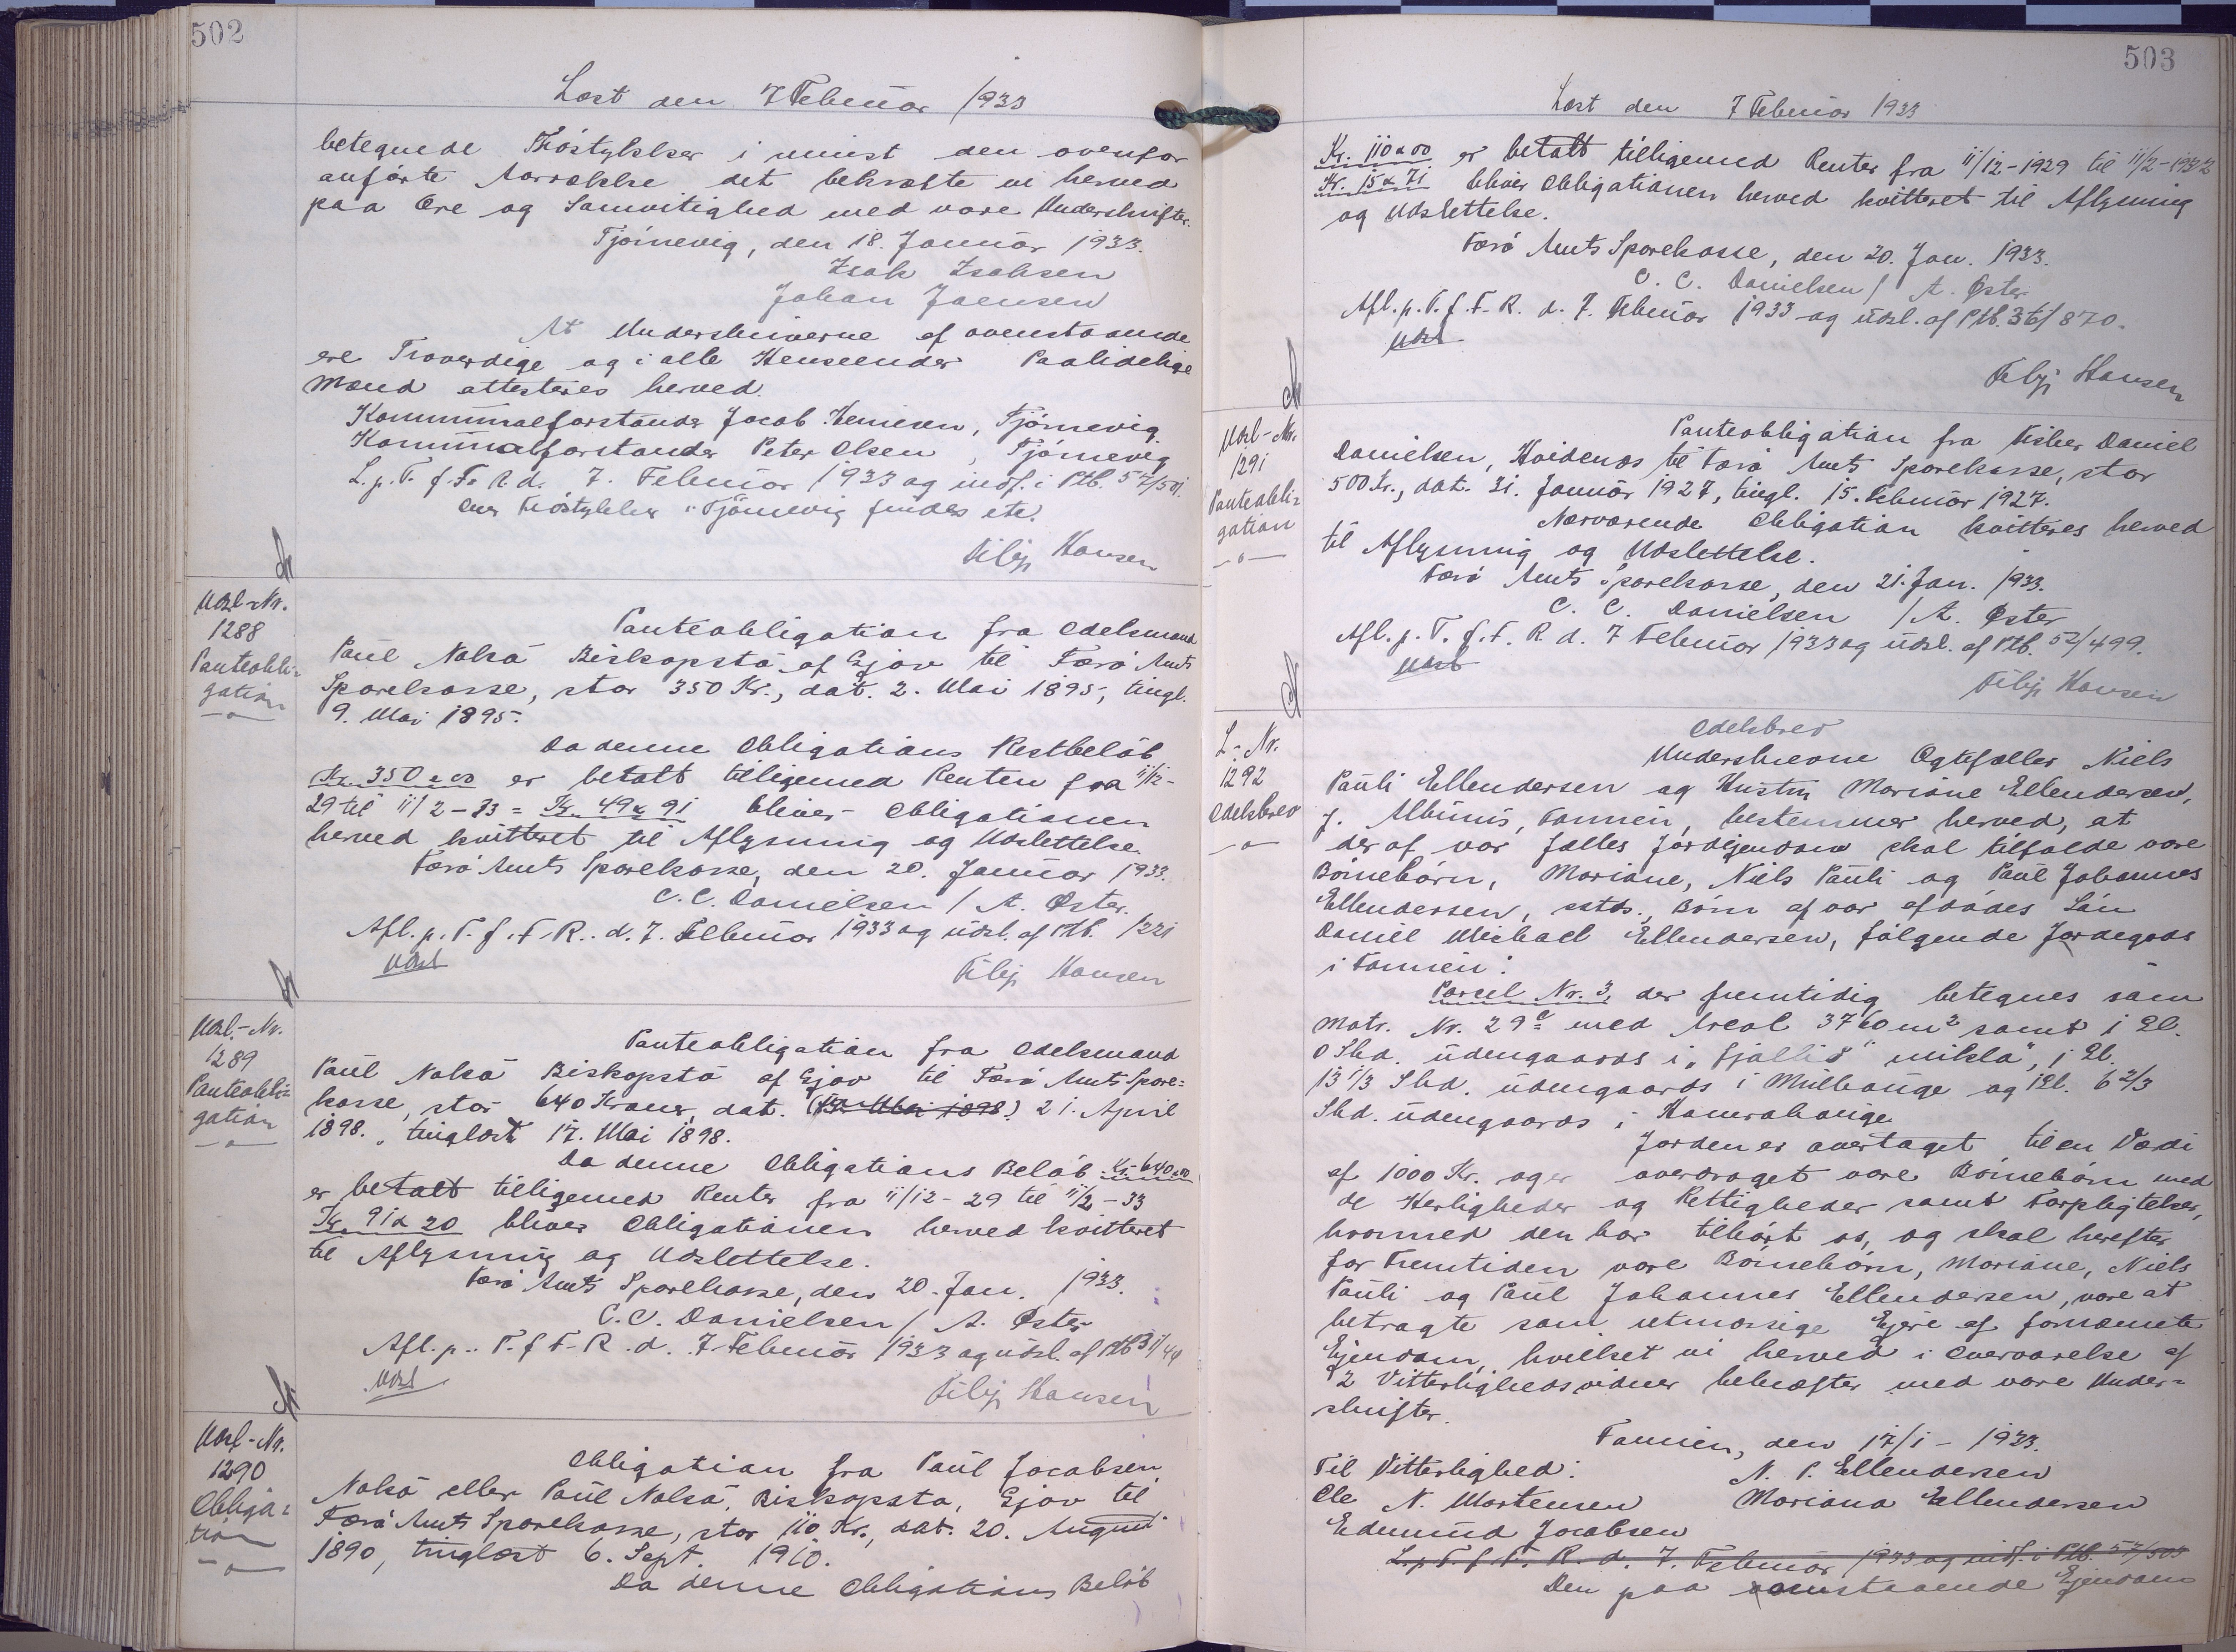 502
Læst den 7 Februar 1933
betegnede Tróstykker i mindst den ovenfor
anførte Aarrække det bekræfte vi herved
paa Ære og Samvitighed med vore Underskrifter.
Tjörnevig, den 18. Januar 1933.
Isak Isaksen
Johan Joensen
At Underskriverne af ovenstaaende
ere Troværdige og i alle Henseender Paalidelige
Mænd attesteres herved.
Kommunalforstander Jacob , Tjörnevig.
Kommunalforstander Peter Olsen, Tjörnevig
L. p. T. f. F. R. d. 7. Februar 1933 og indf. i Ptb. 57/501.
Tróstykker i Tjörnevig findes etc.
Filip Hansen
Udsl-Nr.
1288
Panteobli-
gation
Panteobligation fra Odelsmand
Paul Nolsö Biskopstö af Gjov til Færö Amts
Sparekasse, stor 350 Kr., dat. 2. Mai 1895, tingl.
9. Mai 1895.
Da denne Obligations Restbelöb
Kr. 350 x 00 er betalt tilligemed Renten fra 11/12-
29 til 11/2-33 = Kr. 49 x 91 bliver Obligationen
herved kvitteret til Aflysning og Udslettelse.
Færö Amts Sparekasse, den 20. Januar 1933.
C. C. Danielsen / A. Øster.
Afl. p. T. f. F. R. d. 7. Februar 1933 og udsl. af Ptb. 1/221
Udsl
Filip Hansen
Udsl.-Nr.
1289
Panteobli-
gation
Panteobligation fra Odelsmand
Paul Nolsö Biskopstö af Gjov til Færö Amts Spare-
kasse, stor 640 Kroner, dat. (17. Mai 1898) 21. April
1898., tinglæst 17. Mai 1898.
Da denne Obligations Belöb Kr. 640 x 00
er betalt tilligemed Renter fra 11/12-29 til 11/2-33
Kr. 91 x 20 bliver Obligationen herved kvitteret
til Aflysning og Udslettelse.
Færö Amts Sparekasse, den 20. Jan. 1933.
C. C. Danielsen / A. Øster
Afl. p. T. f. F. R. d. 7. Februar 1933 og udsl. af Ptb 31/44
Udsl
Filip Hansen
Udsl-Nr.
1290
Obliga-
tion
Obligation fra Paul Jacobsen
Nolsö eller Paul Nolsö, Biskopstö, Gjov til
Færö Amts Sparekasse, stor 110 Kr., dat. 20. August
1890, tinglæst 6. Sept. 1910.
Da denne Obligations Belöb
503
Læst den 7 Februar 1933
Kr. 110 x 00 er betalt tilligemed Renter fra 11/12-1929 til 11/2-1933
Kr. 15 x 71 bliver Obligationen herved kvitteret til Aflysning
og Udslettelse.
Færö Amts Sparekasse, den 20. Jan. 1933.
C. C. Danielsen / A. Øster
Afl. p. T. f. F. R. d. 7. Februar 1933 og udsl. af Ptb. 36/870.
Udsl
Filip Hansen
Udsl-Nr.
1291
Panteobli-
gation
Panteobligation fra Fisker Daniel
Danielsen, Hvidenæs til Færö Amts Sparekasse, stor
500 Kr., dat. 31. Januar 1927, tingl. 15. Februar 1927.
Nærværende Obligation kvitteres herved
til Aflysning og Udslettelse.
Færö Amts Sparekasse, den 21. Jan. 1933.
C. C. Danielsen / A. Øster
Afl. p. T. f. F. R. d. 7 Februar 1933 og udsl. af Ptb. 52/499.
Udsl
Filip Hansen
L.-Nr.
1292
Odelsbrev
Odelsbrev
Underskrevne Ogtefæller Niels
Pauli Ellendersen og Hustru Mariane Ellendersen,
f. Albinus, Famien, bestemmer herved, at
der af vor fælles Jordejendom skal tilfalde vore
Börnebörn, Mariane, Niels Pauli og Paul Johannes
Ellendersen, sstds., Börn af vor afdödes Sön
Daniel Michael Ellendersen, fölgende Jordegods
i Famien:
Parcel Nr. 3, der fremtidig betegnes som
Matr. Nr. 29c med Areal 3760 m2 samt 1 El.
0 Skd. udengaards i "Fjallið mikla", 1 El.
13 1/3 Skd. udengaards i Mulhauge og 1 El. 6 2/3
Skd. udengaards i Hamrahauge
Jorden er overtaget til en Værdi
af 1000 Kr. og er overdraget vore Börnebörn med
de Herligheder og Rettigheder samt Forpligtelser,
hvormed den har tilhört os, og skal herefter
for Fremtiden vore Börnebörn, Mariane, Niels
Pauli og Paul Johannes Ellendersen, være at
betragte som retmæssige Ejere af fornævnte
Ejendom, hvilket vi herved i Overværelse af
2 Vitterlighedsvidner bekræfter med vore Under-
skrifter.
Famien, den 17/1 - 1933.
Til Vitterlighed: N. P. Ellendersen
Ole N. Mortensen Mariana Ellendersen
Edmund Jacobsen
L. p. T. f. F. R. d. 7. Februar 1933 og indf. i Ptb. 57/503
Den paa omstaaende Ejendom